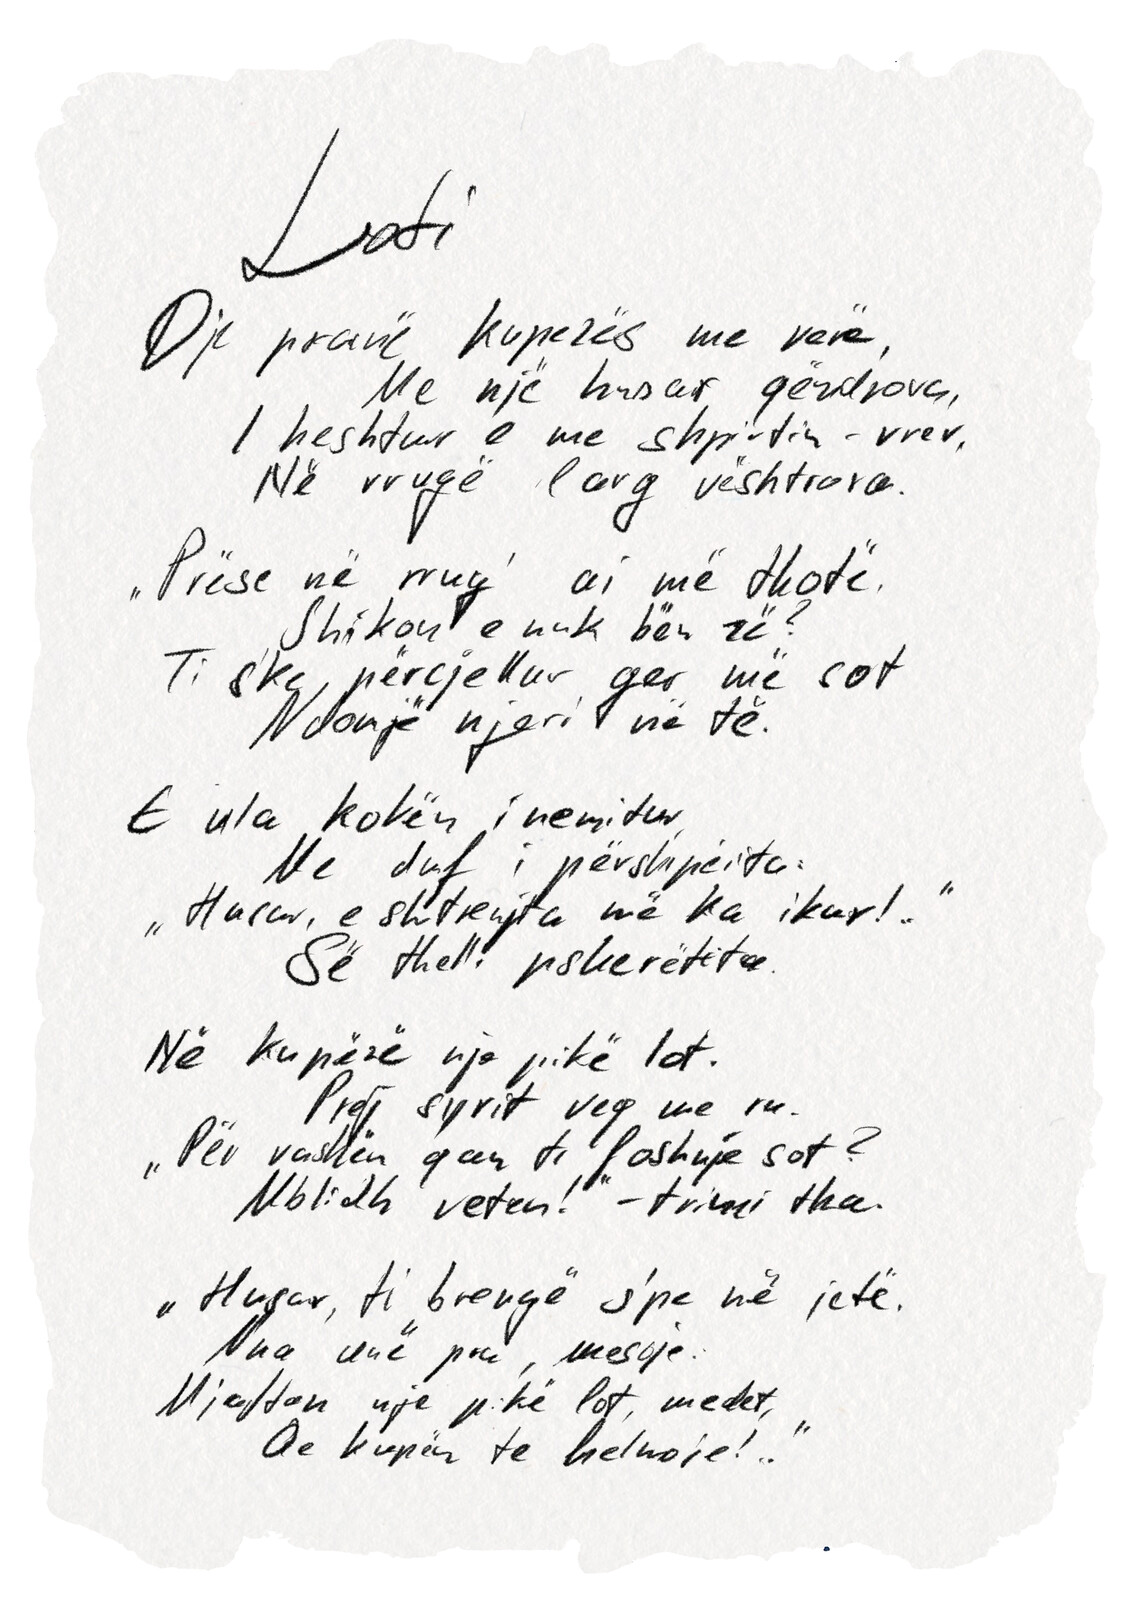 Loti
Dje pranë kupezës me verë,
Me një husar qëndrova,
I heshtur e me shpirtin - vrer,
Në rrugë larg vështrova.
„Përse në rrug' ai më thotë.
Shikon e nuk bën zë?
Ti s'ke përcjellur ger më sot
Ndonjë njeri në të.
E ula kokën i nemitur
Me duf i përshpërita:
„Husar, e shtrenjta më ka ikur!.."
Së thelli psherëtita.
Në kupëzë nje pikë lot.
Prej syrit veç me ra.
„Për vashën qan ti foshnje sot?
Mblidh veten!" - trimi tha.
„Husar, ti brengë s'pe në jetë.
Nga unë pra, mesoje:
Mjafton nje pikë lot, medet,
Qe kupën te helmoje!.."